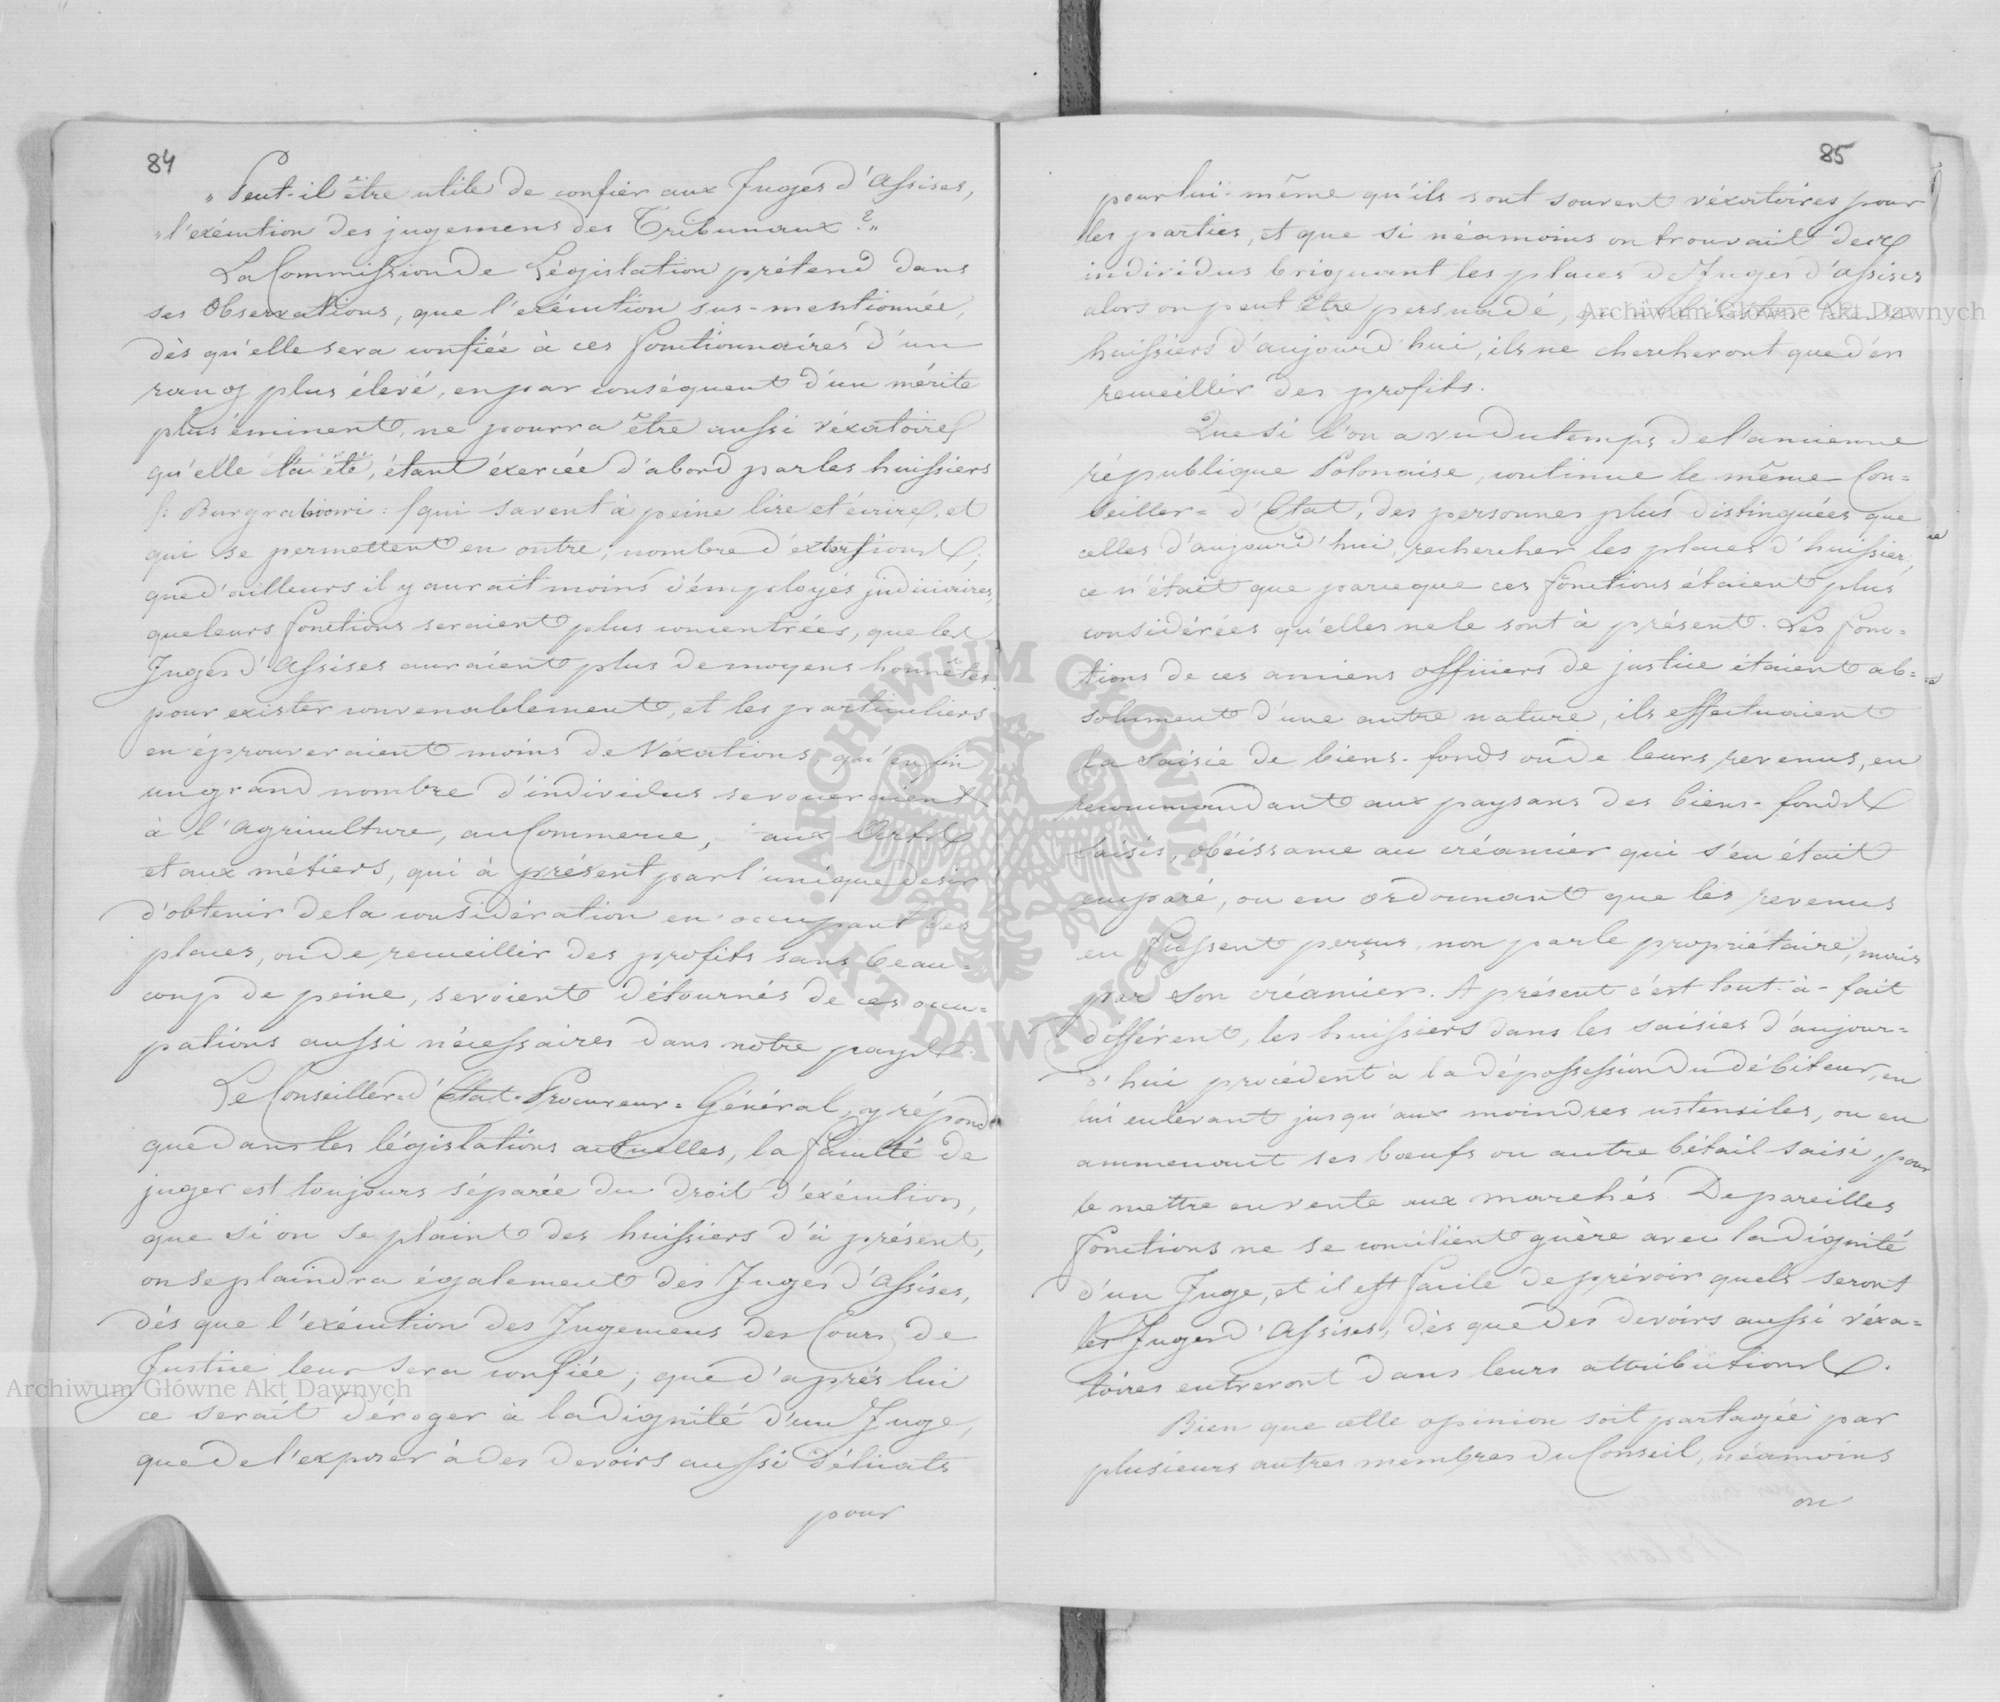 84
„Peut-il être utile de confier aux Juges d'Assises,
„l'exécution des jugemens des Tribunaux?„
La Commission de Législation prétend dans
ses Observations, que l'exécution sus-mentionnée,
dès qu'elle sera confiée à ces fonctionnaires d'un
rang plus élevé, en par conséquent d'un mérite
plus éminent, ne pourra être aussi véxatoire
qu'elle l'a été, étant éxercée d'abord par les huissiers
/: Burgrabiowi :/ qui savent à peine lire et écrire, et
qui se permettent en outre, nombre d'extorsions;
que d'ailleurs il y aurait moins d'employés judiciaires,
que leurs fonctions seraient plus concentrées, que les
Juges d'Assises auraient plus de moyens honnêtes
pour exister convenablement, et les particuliers
en éprouveraient moins de véxations, qu'enfin
un grand nombre d'individus se voueraient
à l'Agriculture, au Commerce, aux Arts
et aux métiers, qui à présent par l'unique desir
d'obtenir de la considération en occupant des
places, ou de recueillir des profits sans beau-
coup de peine, seroient détournés de ces occu-
pations aussi nécessaires dans notre pays.
Le Conseiller=d'Etat-Procureur=Général, y répond
que dans les législations actuelles, la faculté de
juger est toujours séparée du droit d'exécution,
que si on se plaint des huissiers d'à présent,
on se plaindra également des Juges d'Assises,
dès que l'exécution des Jugemens des Cours de
Justice leur sera confiée; que d'après lui
ce serait déroger à la dignité d'un Juge,
que de l'exposer à des devoirs aussi délicats
pour
85
pour lui-même qu'ils sont souvent véxatoires pour
les parties, et que si néamoins on trouvait des
individus briguant les places de Juges d'Assises
alors on peut être persuadé,
huissiers d'aujourd'hui, ils ne chercheront que d'en
recueillir des profits.
Que si l'on a vu du temps de l'ancienne
république Polonaise, continue le même Con=
seiller=d'Etat, des personnes plus distinguées que
celles d'aujourd'hui, rechercher les places d'huissier,
ce n'était que parceque ces fonctions étaient plus
considérées qu'elles ne le sont à présent. Les fonc=
tions de ces anciens officiers de justice étaient ab=
solument d'une autre nature, ils effectuaient
la saisie de biens-fonds ou de leurs revenus, en
recommandant aux paysans des biens-fonds
saisis, obéissance au créancier qui s'en était
emparé, ou en ordonnant que les revenus
en fussent perçus, non par le propriétaire, mais
par son créancier. A présent c'est tout-à-fait
différent, les huissiers dans les saisies d'aujour=
d'hui procèdent à la dépossession du débiteur, en
lui enlevant jusqu'aux moindres ustensiles, ou en
ammenant ses bœufs ou autre bétail saisi, pour
le mettre en vente aux marchés. De pareilles
fonctions ne se concilient guère avec la dignité
d'un Juge, et il est facile de prévoir quels seront
les Juges d'Assises, dès que des devoirs aussi véxa=
toires entreront dans leurs attributions.
Bien que cette opinion soit partagée par
plusieurs autres membres du Conseil, néamoins
on
Archiwum Główne Akt Dawnych
Archiwum Główne Akt Dawnych
ARCHIWUM GŁÓWNE AKT DAWNYCH